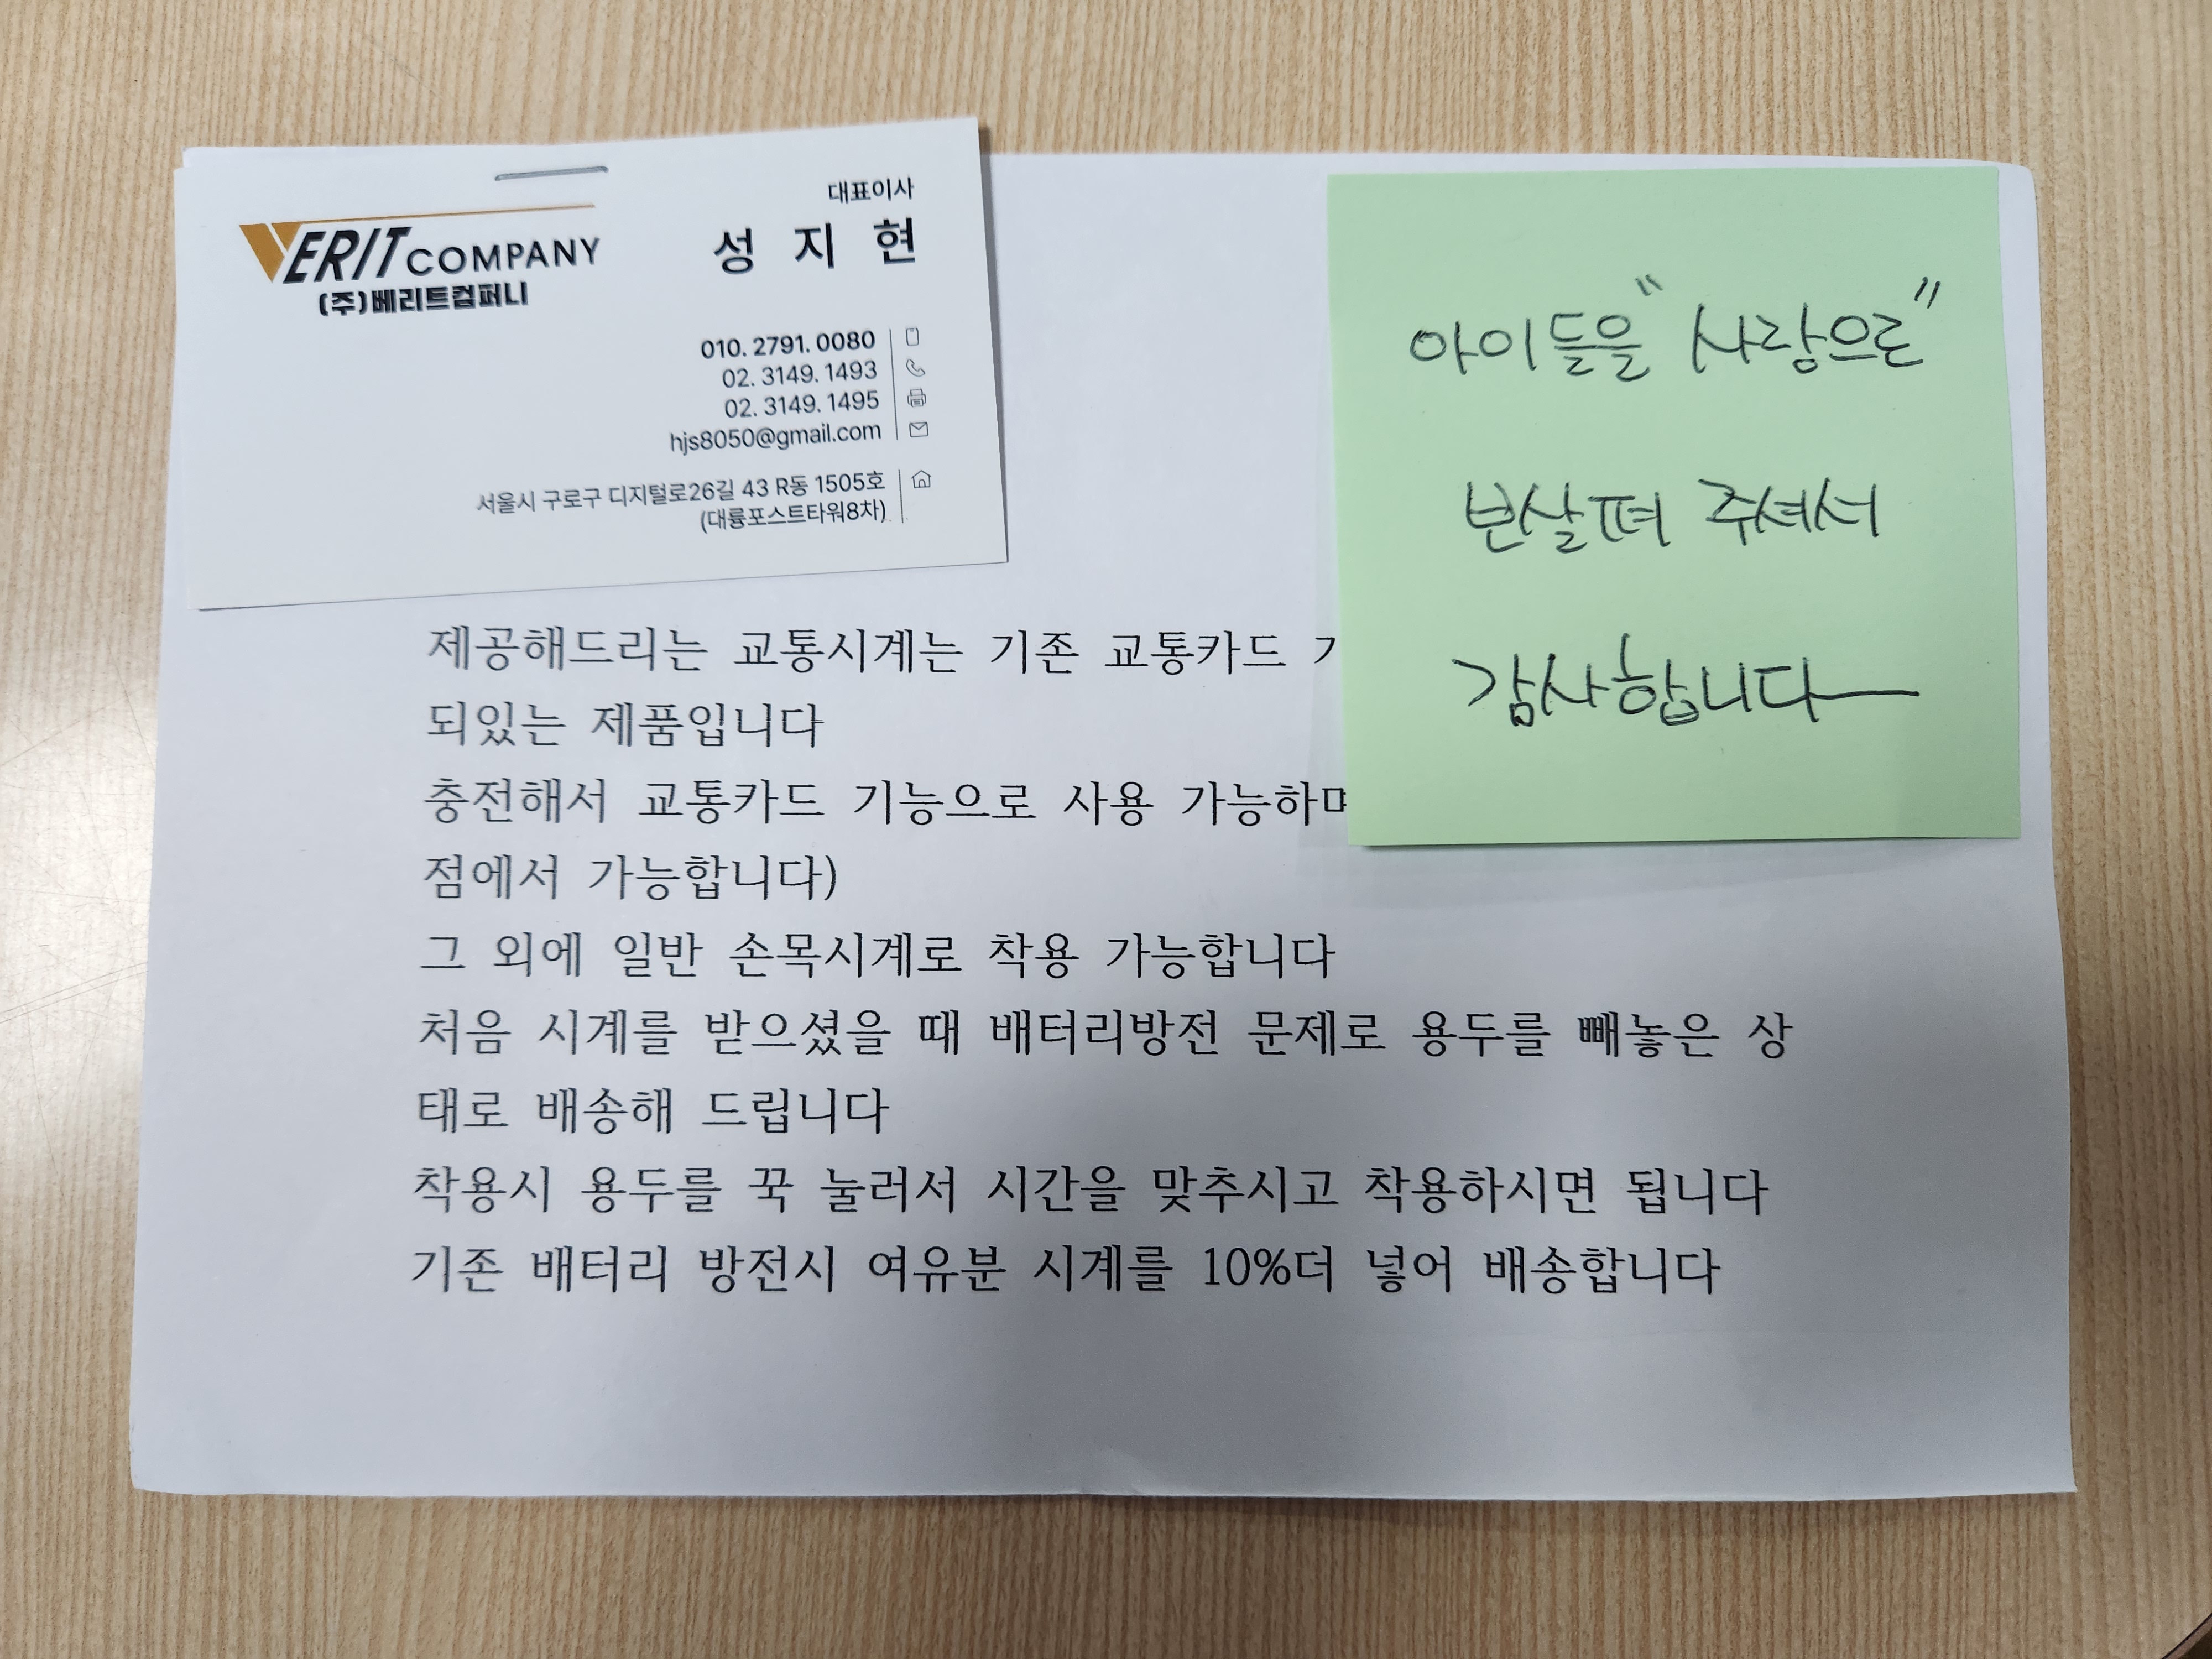 VERIT COMPANY
(주)베리트컴퍼니
대표이사
성 지 현
010. 2791. 0080
02. 3149. 1493
02. 3149. 1495
hjs8050@gmail.com
서울시 구로구 디지털로26길 43 R동 1505호
(대륭포스트타워8차)
아이들을 "사랑으로"
보살펴 주셔서
감사합니다
제공해드리는 교통시계는 기존 교통카드
되있는 제품입니다
충전해서 교통카드 기능으로 사용 가능하며
점에서 가능합니다)
그 외에 일반 손목시계로 착용 가능합니다
처음 시계를 받으셨을 때 배터리방전 문제로 용두를 빼놓은 상
태로 배송해 드립니다
착용시 용두를 꾹 눌러서 시간을 맞추시고 착용하시면 됩니다
기존 배터리 방전시 여유분 시계를 10%더 넣어 배송합니다